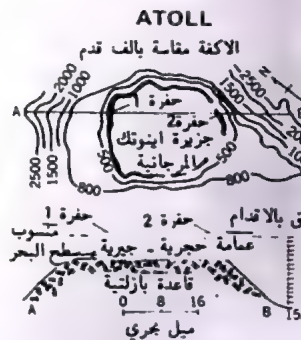 ATOLL
الاكفة مقاسة بالف قدم
2000
1000
2500
1500
N
A
حفرة 1
حفرة 2
جزيرة اينوتك
المرجانية
500
500
800
800
1500
2500
حفرة 1
حفرة 2
بالاقدام
منسوب
عمامة حجرية - جيرية
مسطح البحر
قاعدة بازلتية
A
0 8 16
B
ميل بحري